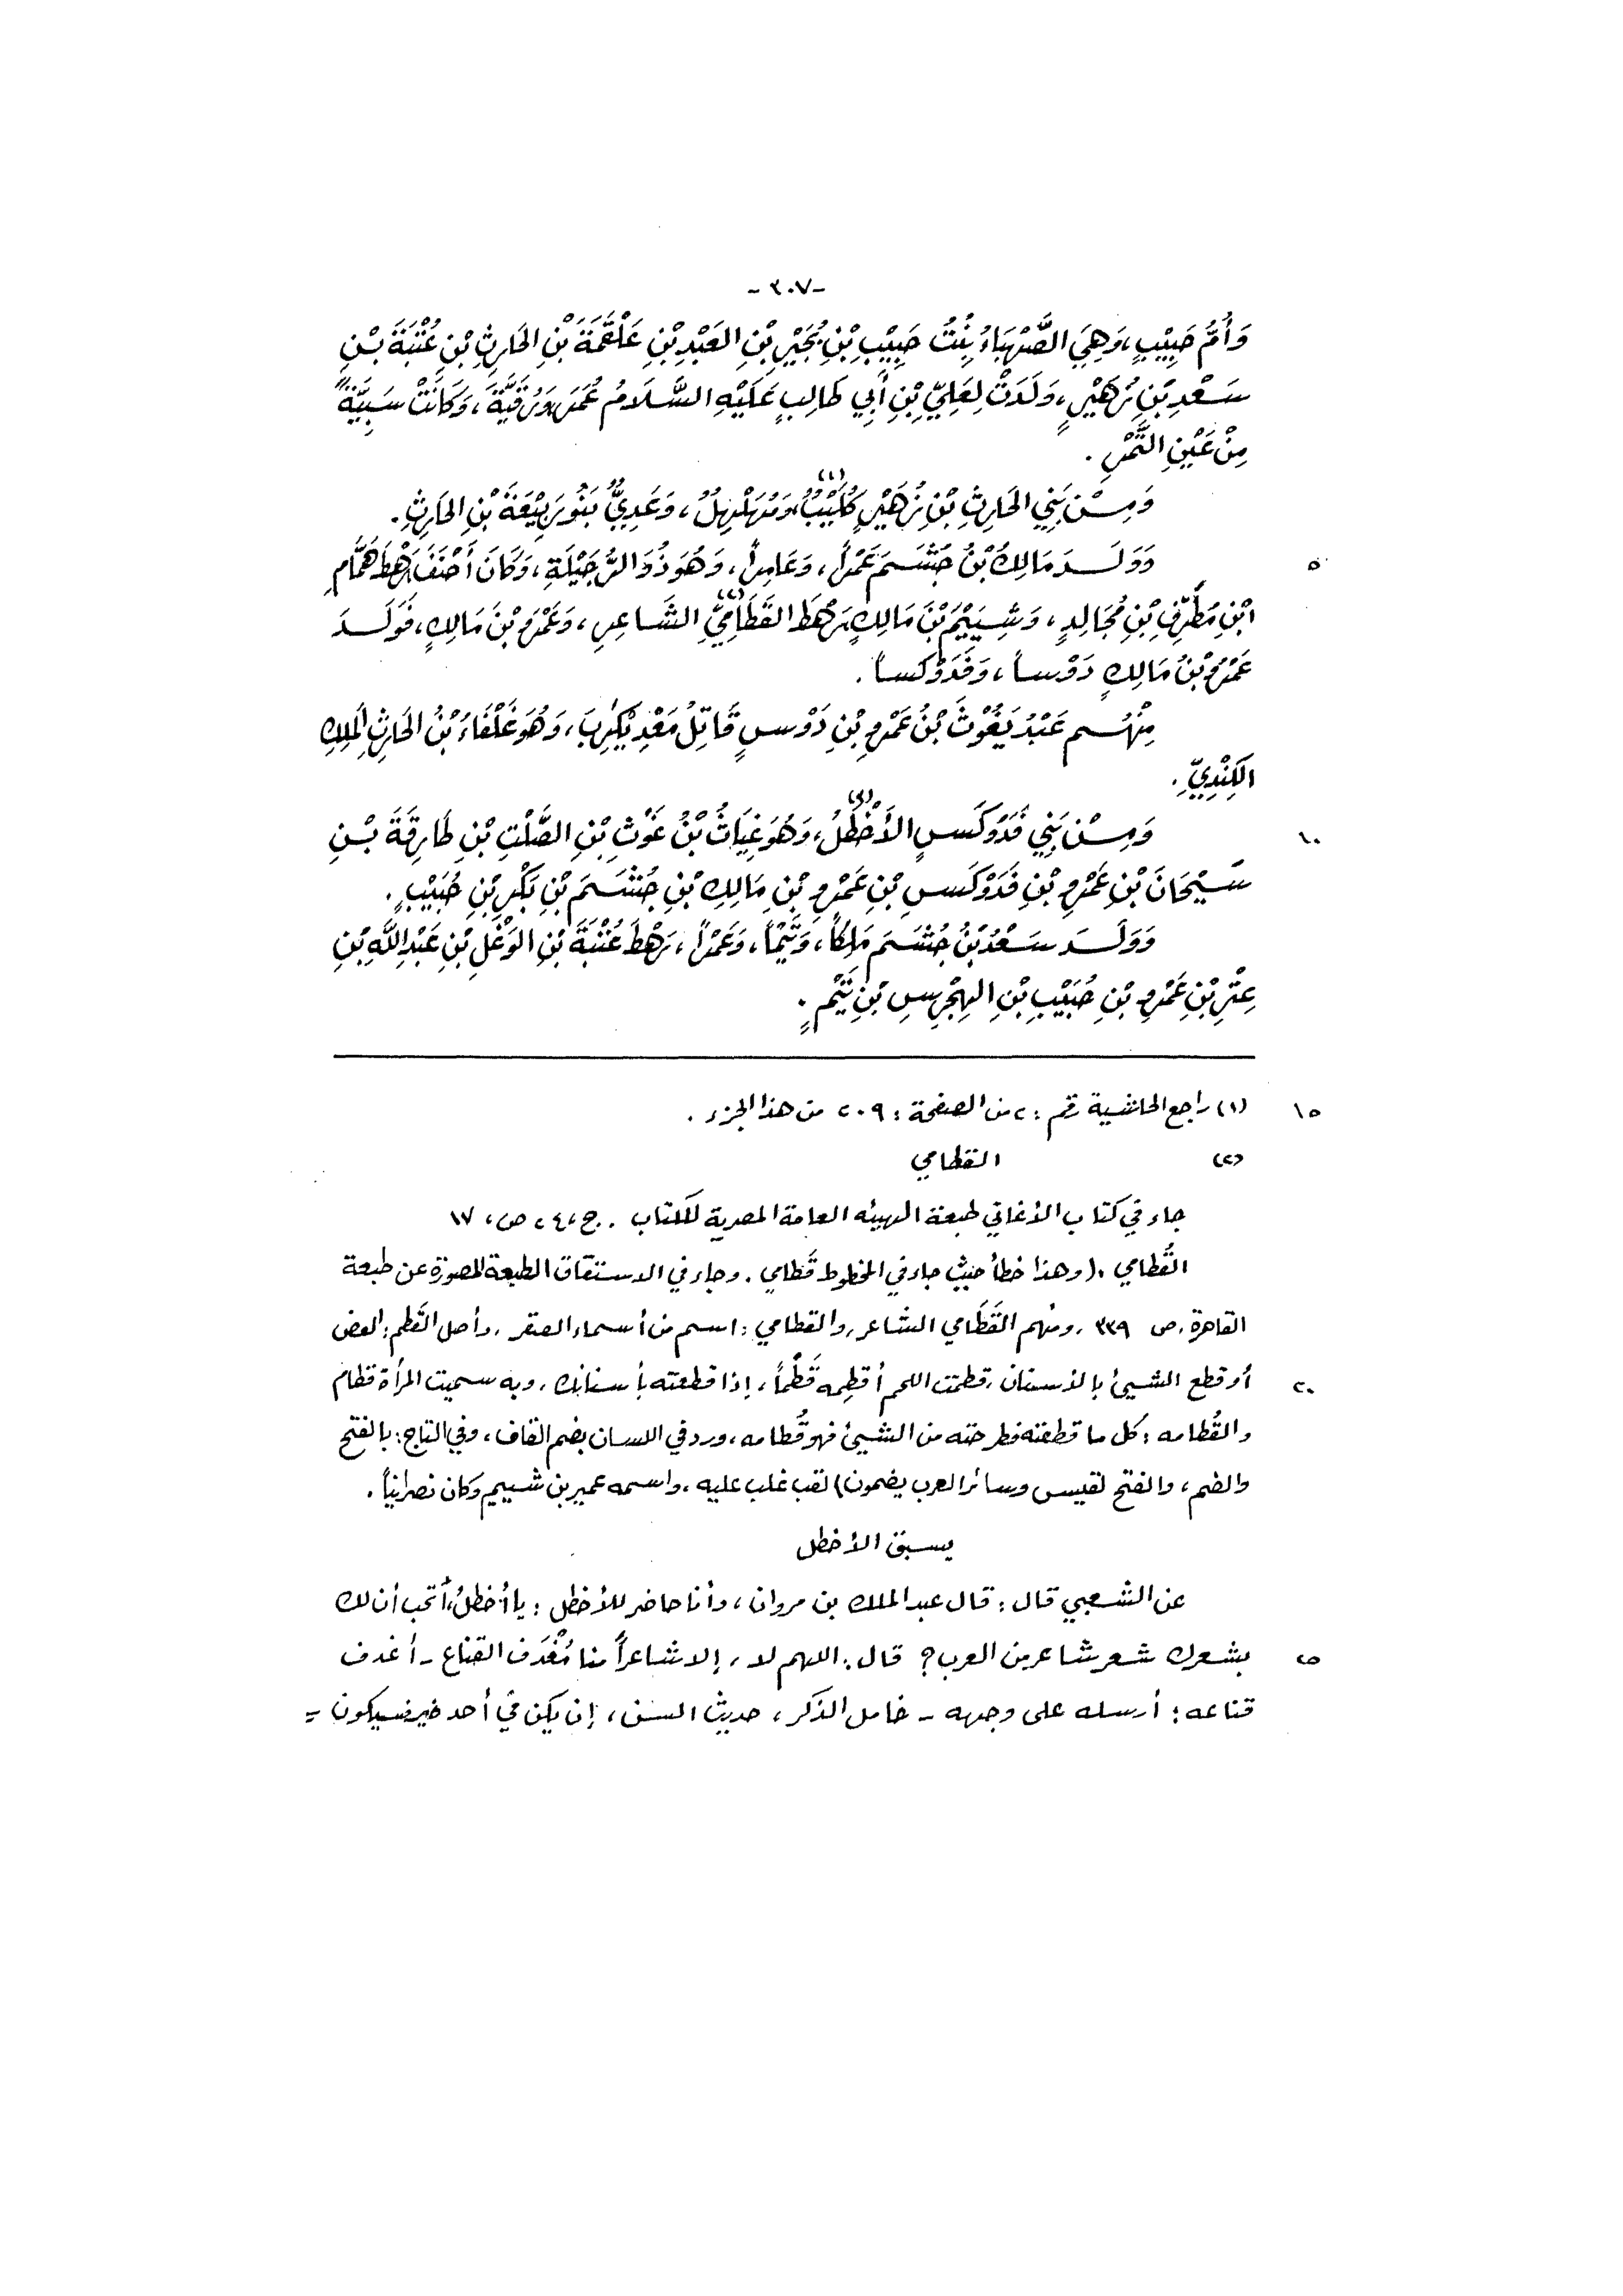 -٣٠٧-
وَأُمُّ حَبِيْبٍ، وَهِيَ الصَّهْبَاءُ بِنْتُ حَبِيْبِ بْنِ بُجَيْرِ بْنِ العَبْدِ بْنِ عَلْقَمَةَ بْنِ الحَارِثِ بْنِ عُتْبَةَ بْنِ
سَعْدِ بْنِ زُهَيْرٍ، وَلَدَتْ لِعَلِيِّ بْنِ أَبِي طَالِبٍ عَلَيْهِ السَّلَامُ عُمَرَ وَرُقَيَّةَ، وَكَانَتْ سَبِيَّةً
مِنْ عَيْنِ التَّمْرِ.
وَمِنْ بَنِي الحَارِثِ بْنِ زُهَيْرٍ كُلَيْبٌ(١)، وَمُهَلْهِلٌ، وَعَدِيٌّ بَنُو رَبِيْعَةَ بْنِ الحَارِثِ.
٥ وَوَلَدَ مَالِكُ بْنُ جُشَمَ عَمْراً، وَعَامِراً، وَهُوَ ذُو الرُّجَيْلَةِ، وَكَانَ أَحْنَفَ، رَهْطَ هَمَّامِ
ابْنِ مُطَرِّفِ بْنِ مُجَالِدٍ، وَشِيَيْمَ بْنَ مَالِكٍ رَهْطَ القَطَامِيِّ(٢) الشَّاعِرِ، وَعَمْرَو بْنَ مَالِكٍ، فَوَلَدَ
عَمْرُو بْنُ مَالِكٍ دَوْساً، وَفَدَوْكَساً.
مِنْهُم عَبْدُ يَغُوْثَ بْنُ عَمْرِو بْنِ دَوْسٍ قَاتِلُ مَعْدِ يْكَرِبَ، وَهُوَ غَلْفَاءُ بْنُ الحَارِثِ المَلِكِ
الكِنْدِيِّ.
١٠ وَمِنْ بَنِي فَدَوْكَسٍ الأَخْطَلُ(٣)، وَهُوَ غِيَاثُ بْنُ غَوْثِ بْنِ الصَّلْتِ بْنِ طَارِقَةَ بْنِ
سَيْحَانَ بْنِ عَمْرِو بْنِ فَدَوْكَسِ بْنِ عَمْرِو بْنِ مَالِكِ بْنِ جُشَمَ بْنِ بَكْرِ بْنِ حُبَيْبٍ.
وَوَلَدَ سَعْدُ بْنُ جُشَمَ مَالِكاً، وَتَيْماً، وَعَمْراً، رَهْطَ عُتْبَةَ بْنِ الوَغْلِ بْنِ عَبْدِ اللَّهِ بْنِ
عِتْرِ بْنِ عَمْرِو بْنِ حُبَيْبِ بْنِ الهِجْرِسِ بْنِ تَيْمٍ.
١٥ (١) راجع الحاشية رقم: ٢ من الصفحة: ٢٠٩ من هذا الجزء.
(٢) القطامي
جاء في كتاب الأغاني طبعة الهيئه العامة المصرية للكتاب. ج، ٢٤، ص، ١٧
القُطامي. (وهذا خطأ حيث جاء في المخطوط قَطامي. وجاء في الاستقاق الطبعة المصورة عن طبعة
القاهرة، ص ٣٣٩، ومنهم القَطَامي الشاعر، والقطامي: اسم من أسماء الصقر، وأصل القَطم: العض
٢٠ أو قطع الشيئ بالأسنان، قطمت اللحم أقطِمه قَطْماً، إذا قطعته بأسنانك، وبه سميت المرأة قطام
والقُطامه: كل ما قطعته فطرحته من الشيئ فهو قُطامه، ورد في اللسان بضم القاف، وفي التاج: بالفتح
والضم، والفتح لقيس وسائر العرب يضمون) لقب غلب عليه، واسمه عمير بن شييم وكان نصرانياً.
يسبق الأخطل
عن الشعبي قال: قال عبد الملك بن مروان، وأنا حاضر للأخطل: يا أخطلُ، أتحب أن لك
٢٥ بشعرك شعر شاعر من العرب؟ قال: اللهم لا، إلا شاعراً منا مُغْدَف القناع - أغدف
قناعه: أرسله على وجهه - خامل الذكر، حديث السن، إن يكن في أحد خير فسيكون =